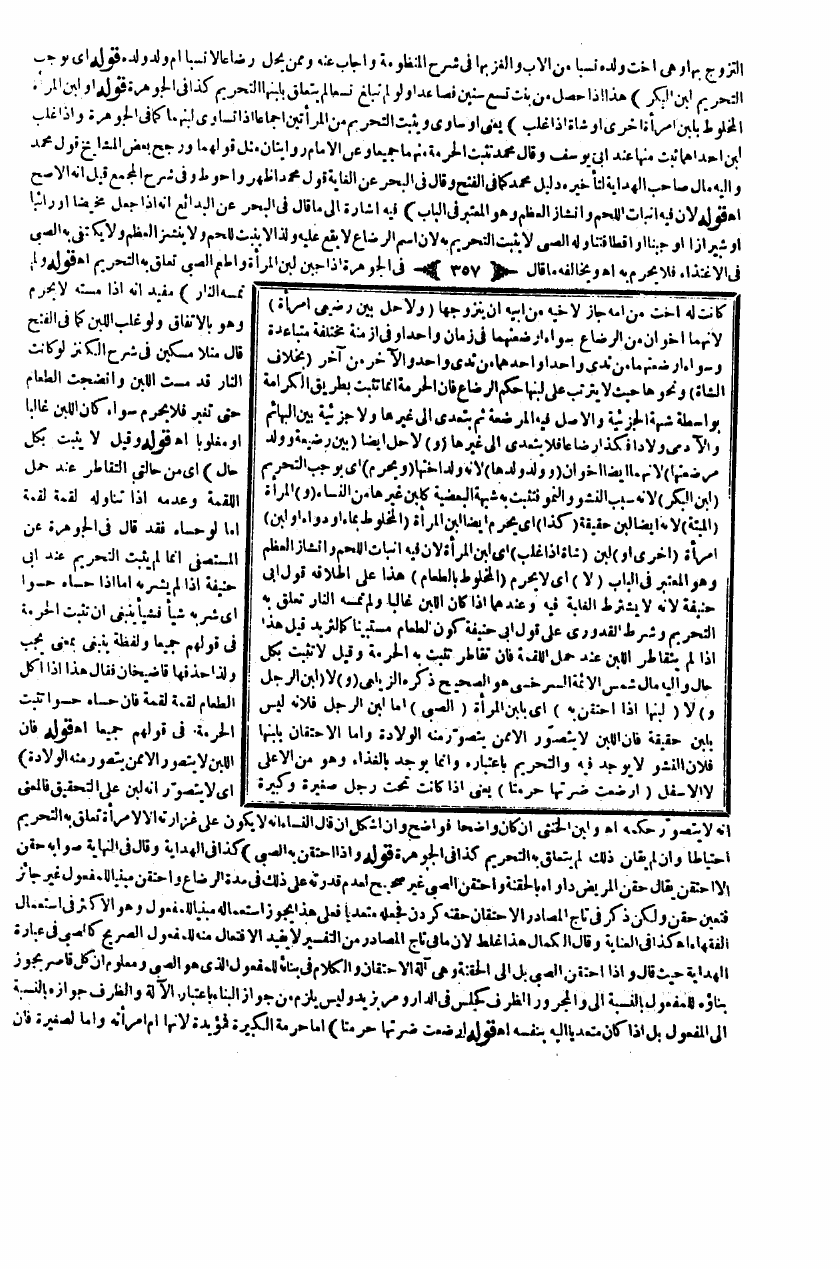 التزوج بها وهى اخت ولده نسبا من الاب والغز بها فى شرح المنظومة واجاب عنه وممن يحل رضاعا لا نسبا ام ولد ولده قوله اى يوجب
التحريم لبن البكر ) هذا اذا حصل من بنت تسع سنين فصاعدا ولو لم تبلغ تسعا لم يتعلق بلبنها التحريم كذا فى الجوهرة قوله او لبن المرأة
المخلوط بلبن امرأة اخرى او شاة اذا غلب ) يعنى او ساوى ويثبت التحريم من المرأتين اجماعا اذا تساوى لبنهما كما فى الجوهرة واذا غلب
لبن احداهما ثبت منها عند ابى يوسف وقال محمد تثبت الحرمة منهما جميعا وعن الامام روايتان مثل قولهما ورجح بعض المشايخ قول محمد
واليه مال صاحب الهداية لتأخيره دليل محمد كما فى الفتح وقال فى البحر عن الغاية قول محمد اظهر واحوط وفى شرح المجمع قيل انه الاصح
اه قوله لان فيه انبات اللحم وانشاز العظم وهو المعتبر فى الباب ) فيه اشارة الى ما قال فى البحر عن البدائع انه اذا جعل مخيضا او رائبا
او شيرازا او جبنا او اقطا فتناوله الصبى لا يثبت التحريم به لان اسم الرضاع لا يقع عليه ولذا لا ينبت اللحم ولا ينشز العظم ولا يكتفى به الصبى
فى الاغتذاء فلا يحرم به اه ويخالفه ما قال ٣٥٧ فى الجوهرة اذا جبن لبن المرأة واطعم الصبى تعلق به التحريم اه قوله ولم
كانت له اخت من امه جاز لاخيه من ابيه ان يتزوجها ( ولا حل بين رضيعى امرأة )
لانهما اخوان من الرضاع سواء ارضعتهما فى زمان واحد او فى ازمنة مختلفة متباعدة
وسواء ارضعتهما من ثدى واحد او احدهما من ثدى واحد والآخر من آخر ( بخلاف
الشاة ) ونحوها حيث لا يترتب على لبنها حكم الرضاع فان الحرمة انما تثبت بطريق الكرامة
بواسطة شبهة الجزئية والاصل فيه المرضعة ثم يتعدى الى غيرها ولا جزئية بين البهائم
والآدمى ولادا فكذا رضاعا فلا يتعدى الى غيرها ( و ) لا حل ايضا ( بين رضيعة وولد
مرضعتها ) لانهما ايضا اخوان ( وولد ولدها ) لانه ولد اختها ( ويحرم ) اى يوجب التحريم
( لبن البكر ) لانه سبب النشو والنمو فتثبت به شبهة البعضية كلبن غيرها من النساء ( و ) المرأة
( الميتة ) لانه ايضا لبن حقيقة ( كذا ) اى يحرم ايضا لبن المرأة ( المخلوط بماء او دواء او لبن )
امرأة ( اخرى او ) لبن ( شاة اذا غلب ) اى لبن المرأة لان فيه انبات اللحم وانشاز العظم
وهو المعتبر فى الباب ( لا ) اى لا يحرم ( المخلوط بالطعام ) هذا على اطلاقه قول ابى
حنيفة لانه لا يشترط الغلبة فيه وعندهما اذا كان اللبن غالبا ولم تمسه النار تعلق به
التحريم وشرط القدورى على قول ابى حنيفة كون الطعام مستبينا كالثريد قيل هذا
اذا لم يتقاطر اللبن عند حمل اللقمة فان تقاطر تثبت به الحرمة وقيل لا تثبت بكل
حال واليه مال شمس الائمة السرخسى هو الصحيح ذكره الزيلعى ( و ) لا ( لبن الرجل
و ) لا ( لبنها اذا احتقن به ) اى بلبن المرأة ( الصبى ) اما لبن الرجل فلانه ليس
بلبن حقيقة فان اللبن لا يتصوّر الا ممن يتصوّر منه الولادة واما الاحتقان بلبنها
فلان النشو لا يوجد فيه والتحريم باعتباره وانما يوجد بالغذاء وهو من الاعلى
لا الاسفل ( ارضعت ضرتها حرمتا ) يعنى اذا كانت تحت رجل صغيرة وكبيرة
تمسه النار ) مفيد انه اذا مسته لا يحرم
وهو بالاتفاق ولو غلب اللبن كما فى الفتح
قال منلا مسكين فى شرح الكنز لو كانت
النار قد مست اللبن وانضجت الطعام
حتى تغير فلا يحرم سواء كان اللبن غالبا
او مغلوبا اه قوله وقيل لا يثبت بكل
حال ) اى من حالتى التقاطر عند حمل
اللقمة وعدمه اذا تناوله لقمة لقمة
اما لو حساه فقد قال فى الجوهرة عن
المستصفى انما لم يثبت التحريم عند ابى
حنيفة اذا لم يشربه اما اذا حساه حسوا
اى شربه شيأ فشيأ ينبغى ان تثبت الحرمة
فى قولهم جميعا ولفظة ينبغى بمعنى يجب
ولذا حذفها قاضيخان فقال هذا اذا اكل
الطعام لقمة لقمة فان حساه حسوا تثبت
الحرمة فى قولهم جميعا اه قوله فان
اللبن لا يتصور الا ممن يتصور منه الولادة )
اى لا يتصوّر انه لبن على التحقيق فالمعنى
انه لا يتصوّر حكمه اه ولبن الخنثى ان كان واضحا فواضح وان اشكل ان قال النساء انه لا يكون على غزارته الا لامرأة تعلق به التحريم
احتياطا وان لم يقلن ذلك لم يتعلق به التحريم كذا فى الجوهرة قوله واذا احتقن به الصبى ) كذا فى الهداية وقال فى النهاية صوابه حقن
لا احتقن يقال حقن المريض داواه بالحقنة واحتقن الصبى غير صحيح لعدم قدرته على ذلك فى مدة الرضاع واحتقن مبنيا للمفعول غير جائز
فتعين حقن ولكن ذكر فى تاج المصادر الاحتقان حقنه كردن فجعله متعديا فعلى هذا يجوز استعماله مبنيا للمفعول وهو الاكثر فى استعمال
الفقهاء اه كذا فى العناية وقال الكمال هذا غلط لان ما فى تاج المصادر من التفسير لا يفيد الافتعال منه للمفعول الصريح كالصبى فى عبارة
الهداية حيث قال واذا احتقن الصبى بل الى الحقنة وهى آلة الاحتقان والكلام فى بنائه للمفعول الذى هو الصبى ومعلوم ان كل قاصر يجوز
بناؤه للمفعول بالنسبة الى والمجرور الظرف كجلس فى الدار ومر بزيد وليس يلزم من جواز البناء باعتبار الآلة والظرف جوازه بالنسبة
الى المفعول بل اذا كان متعديا اليه بنفسه اه قوله ارضعت ضرتها حرمتا ) اما حرمة الكبيرة فمؤبدة لانها ام امرأته واما لصغيرة فان